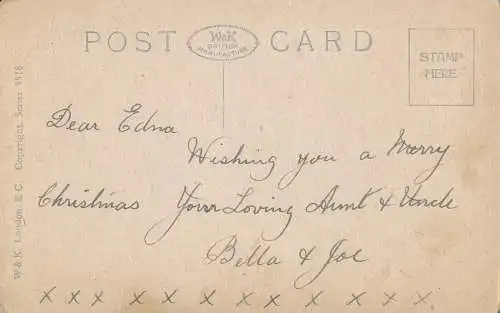 POST CARD
W&K
BRITISH
MANUFACTURE
STAMP
HERE
W & K. London, E.C. Copyright. Series
Dear Edna
Wishing you a Merry
Christmas Your Loving Aunt & Uncle
Bella & Joe
x x x x x x x x x x x x